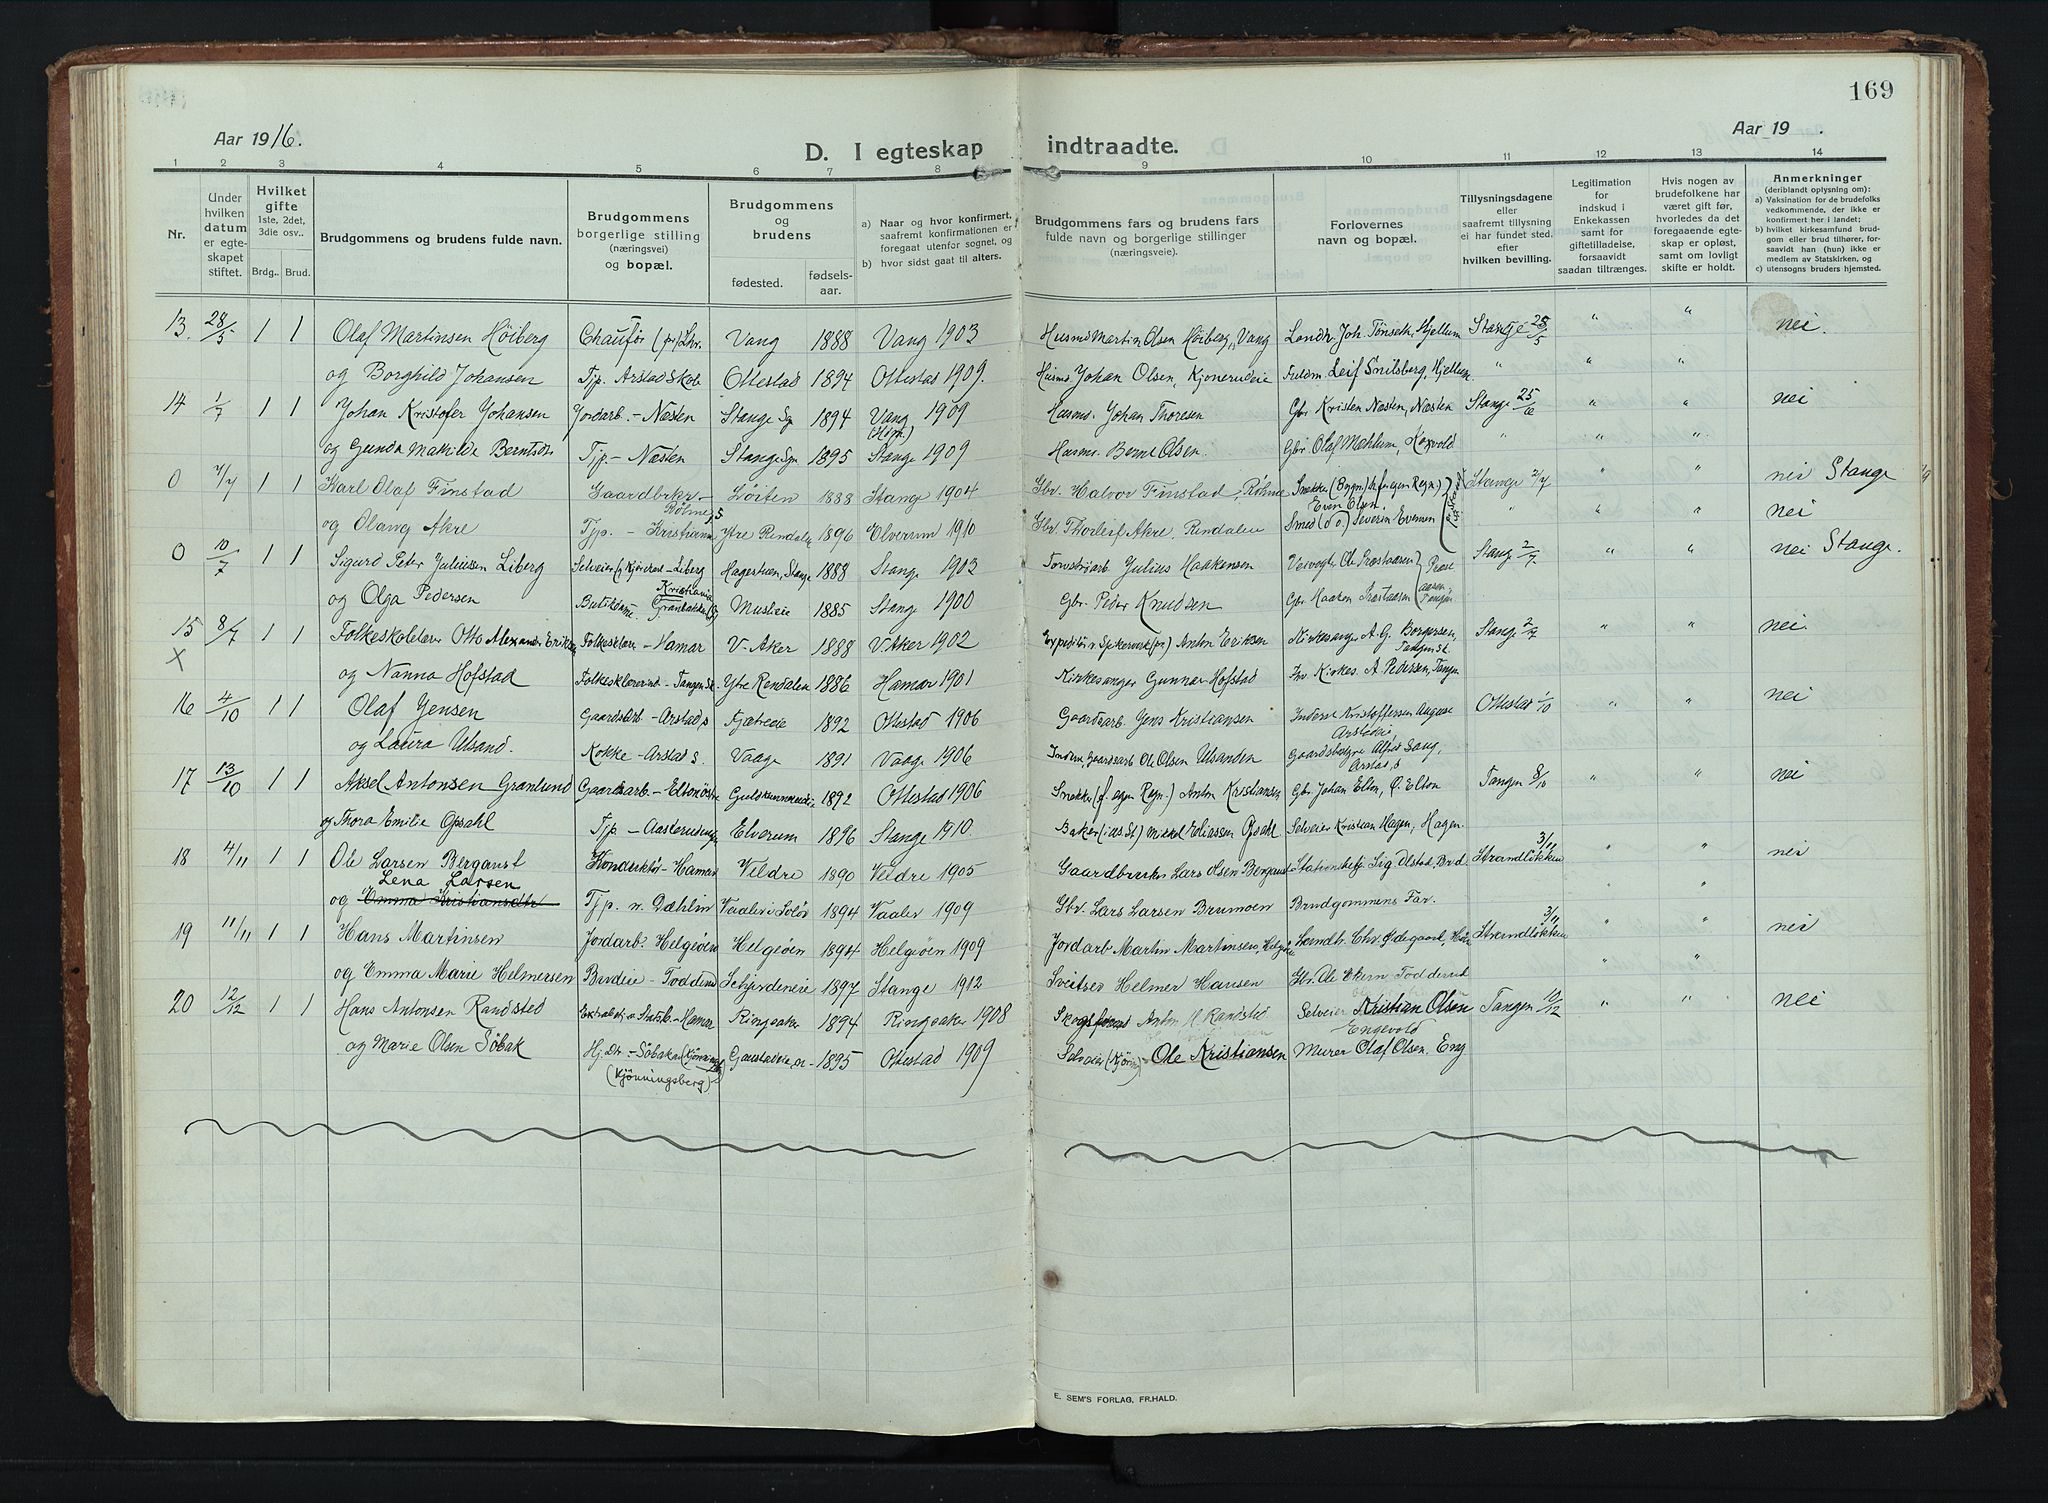 169
Aar 1916.
Aar 19 .
D. I egteskap indtraadte.
1 2 3 4 5 6 7 8 9 10 11 12 13 14
Nr.
Under hvilken datum er egteskapet stiftet.
Hvilket gifte 1ste, 2det, 3die osv..
Brdg.. Brud.
Brudgommens og brudens fulde navn.
Brudgommens borgerlige stilling (næringsvei) og bopæl.
Brudgommens og brudens
fødested. fødsels-aar.
a) Naar og hvor konfirmert, saafremt konfirmationen er foregaat utenfor sognet, og
b) hvor sidst gaat til alters.
Brudgommens fars og brudens fars fulde navn og borgerlige stillinger (næringsveie).
Forlovernes navn og bopæl.
Tillysningsdagene eller saafremt tillysning ei har fundet sted, efter hvilken bevilling.
Legitimation for indskud i Enkekassen samt for giftetilladelse, forsaavidt saadan tiltrænges.
Hvis nogen av brudefolkene har været gift før, hvorledes da det foregaaende egteskap er opløst, samt om lovligt skifte er holdt.
Anmerkninger (deriblandt oplysning om):
a) Vaksination for de brudefolks vedkommende, der ikke er konfirmert her i landet;
b) hvilket kirkesamfund brudgom eller brud tilhører, forsaavidt han (hun) ikke er medlem av Statskirken, og
c) utensogns bruders hjemsted.
13. 28/5 1 1 Olaf Martinsen Höiberg Chaufför (pr) Lhr. Vang 1888 Vang 1903 Husmd Martin Olsen Höiberg, Vang Landh. Joh. Tönseth, Hjellum Stange 25/5 " " nei.
og Borghild Johansen Tjp. Arstad Skole Ottestad 1894 Ottestad 1909. Husmd. Johan Olsen, Kjonerudeie Fuldm Leif Snilsberg, Hjellum " " "
14 1/7 1 1 Johan Kristofer Johansen Jordarb. - Næsten Stange Sgn 1894 Vang (Hdm.) 1909 Husms. Johan Thoresen Gbr Kristen Næsten, Næsten Stange 25/6 " " nei
og Gunda Mathilde Berntsdtr Tjp. - Næsten Stange Sgn 1895 Stange 1909 Husms. Bernt Olsen. Gbr Olaf Mæhlum, Koxvold " " "
0 7/7 1 1 Karl Olaf Finstad Gaardbrkr - Röhne, S Löiten 1888 Stange 1904 Gbr. Halvor Finstad, Röhne Snekker (Bygn.) (f. egen Regn.) Even Olsen Stange 2/7 " " nei Stange
og Olaug Akre Tjp. - Kristiania Ytre Rendalen 1896 Elverum 1910 Gbr. Thorleif Akre, Rendalen Smed (do) Severin Evensen " " " nei
0 10/7 1 1 Sigurd Peter Juliussen Liberg Selveier (Kjörekar) - Liberg Hagestuen, Stange 1888 Stange 1903 Tomtearb Julius Haakensen Veivogter Ole Præstaasen Stange 2/7 " " nei Stange.
og Olga Pedersen Butikdame Kristiania Musteie 1885 Stange 1900 Gbr. Peder Knudsen Gbr Haaken Præstaasen
15 X 8/7 1 1 Folkeskolelærer Otto Alexander Eriksen Folkeskolær - Hamar V-Aker 1888 V Aker 1902 Expeditör v Spikerverk (pr) Anton Eriksen Kirkesanger A. G. Borgersen, Tangen St. Stange 2/7 " " nei.
og Nanna Hofstad Folkeskolærerind - Tangen St. Ytre Rendalen 1886 Hamar 1901 Kirkesanger Gunnar Hofstad Fhv Kirkes. A Pedersen, Tangen
16 4/10 1 1 Olaf Jensen Gaardsarb - Arstad, S Fjætreeie 1892 Ottestad 1906 Gaardsarb. Jens Kristiansen Inderst Kristoffersen August Arstadeie, Ottestad 1/10 " " nei
og Laura Ulsand. Kokke - Arstad S. Vaage 1891 Vaage 1906 Inderst, Gaardsarb Ole Olsen Ulsanden Gaardsbestyrer Alfred Sang, Arstad, S
17 13/10 1 1 Aksel Antonsen Granlund Gaardsarb. - Elton östre 1892 Ottestad 1906 Snekker (f. egen Regn.) Anton Kristiansen Gbr. Johan Elton, Ö. Elton Tangen 8/10 " " nei
og Thora Emilie Opsahl Tjp. - Aasterudengen Elverum 1896 Stange 1910. Baker (i as St) Mikkel Eliassen Opsahl Selveier Kristian Hagen, Hagen.
18 4/11 1 1 Ole Larsen Berganst Konduktör - Hamar Veldre 1890 Veldre 1905 Gaardbruker Lars Olsen Berganst Stationsbetj. Sig. Olstad, Brd. Strandlökken 3/11 " " nei
Lena Larsen
og Emma Kristiansdtr Tjp. n. Dæhlin Vaaler i Solör 1894 Vaaler 1909 Gbr. Lars Larsen Brumoen Brudgommens Far.
19 11/11 1 1 Hans Martinsen Jordarb. Helgeöen Helgeöen 1894 Helgeöen 1909 Jordarb Martin Martinsen, Helgöen Landh. Chr. Ödegaard, Strandlökken 3/11 " " nei
og Emma Marie Helmersen Budeie - Toddrud Schjerdeneie 1897 Stange 1912 Sveitser Helmer Hansen Gbr. Ole Ekern Todderud
20 12/12 1 1 Hans Antonsen Randsted Extrabetj. v Statsb. - Hamar Ringsaker 1894 Ringsaker 1908 Anton H. Randsted Selveier Kristian Olsen Engevold Tangen 10/12 " " nei
og Marie Olsen Söbak Hj. Dtr. - Söbakk (Kjönningsberg) 1895 Ottestad 1909 Selveier (Kjörer) Ole Kristiansen Murer Olaf Olsen, Eng
E. SEM'S FORLAG, FR.HALD.